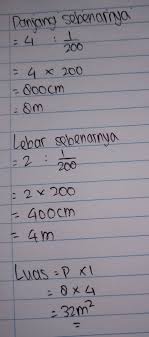 Panjang sebenarnya
= 4 : 1/200
= 4 x 200
= 800cm
= 8m
Lebar sebenarnya
= 2 : 1/200
= 2 x 200
= 400cm
= 4m
Luas = P x l
= 8 x 4
= 32m²
=